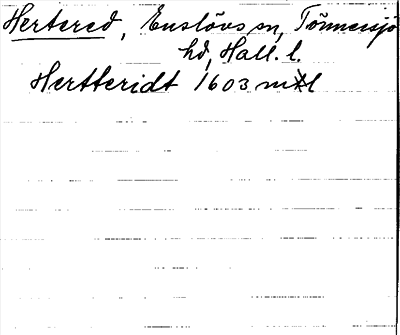 Hertered, Enslövs sn, Tönnersjö
hd, Hall. l.
Hertteridt 1603 mtl